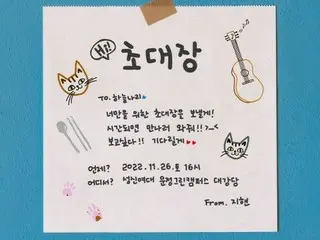 Hi!
초대장
TO. 하늘나리
너만을 위한 초대장을 보낼게!
시간되면 만나러 와줘!!
보고싶다!! 기다릴게
언제? 2022.11.26.토 16시
어디서? 성신여대 운정그린캠퍼스 대강당
From. 지현